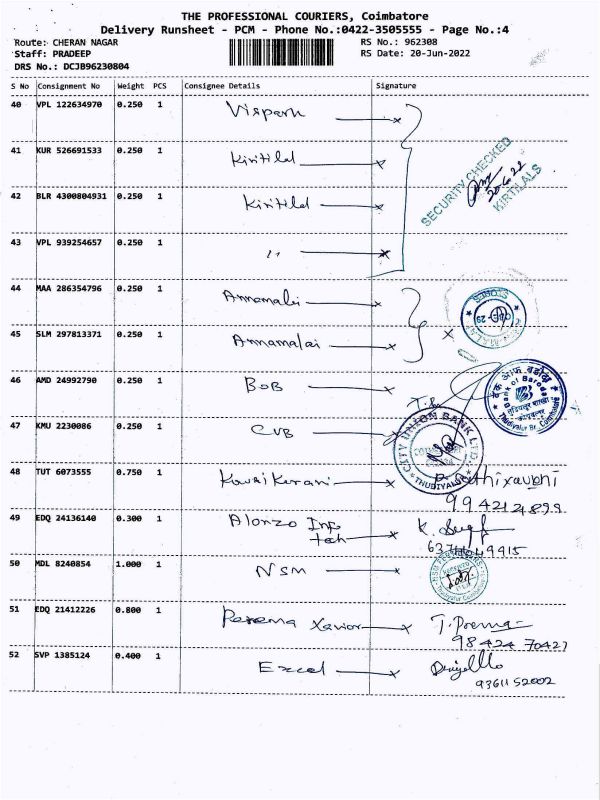 THE PROFESSIONAL COURIERS, Coimbatore
Delivery Runsheet - PCM - Phone No.:0422-3505555 - Page No.:4
Route: CHERAN NAGAR RS No.: 962308
Staff: PRADEEP RS Date: 20-Jun-2022
DRS No.: DCJB96230804
S No Consignment No Weight PCS Consignee Details Signature
40 VPL 122634970 0.250 1
41 KUR 526691533 0.250 1 Kiritilal
SECURITY CHECKED
20.6.22
KIRTILALS
42 BLR 4300804931 0.250 1 Kiritilal
43 VPL 939254657 0.250 1 "
44 MAA 286354796 0.250 1 Annamalai
STORES
45 SLM 297813371 0.250 1 Annamalai
46 AMD 24992790 0.250 1 BOB
बैंक ऑफ़ बड़ौदा
Bank of Baroda
Thudiyalur Br. Coimbatore
47 KMU 2230086 0.250 1 CUB
CITY UNION BANK LTD.
THUDIYALUR
48 TUT 6073555 0.750 1
49 EDQ 24136140 0.300 1 Alonzo Info
tech
50 MDL 8240854 1.000 1 NSM
51 EDQ 21412226 0.800 1 Xavior T. Prema
98424 70427
52 SVP 1385124 0.400 1 Excel
9361152002